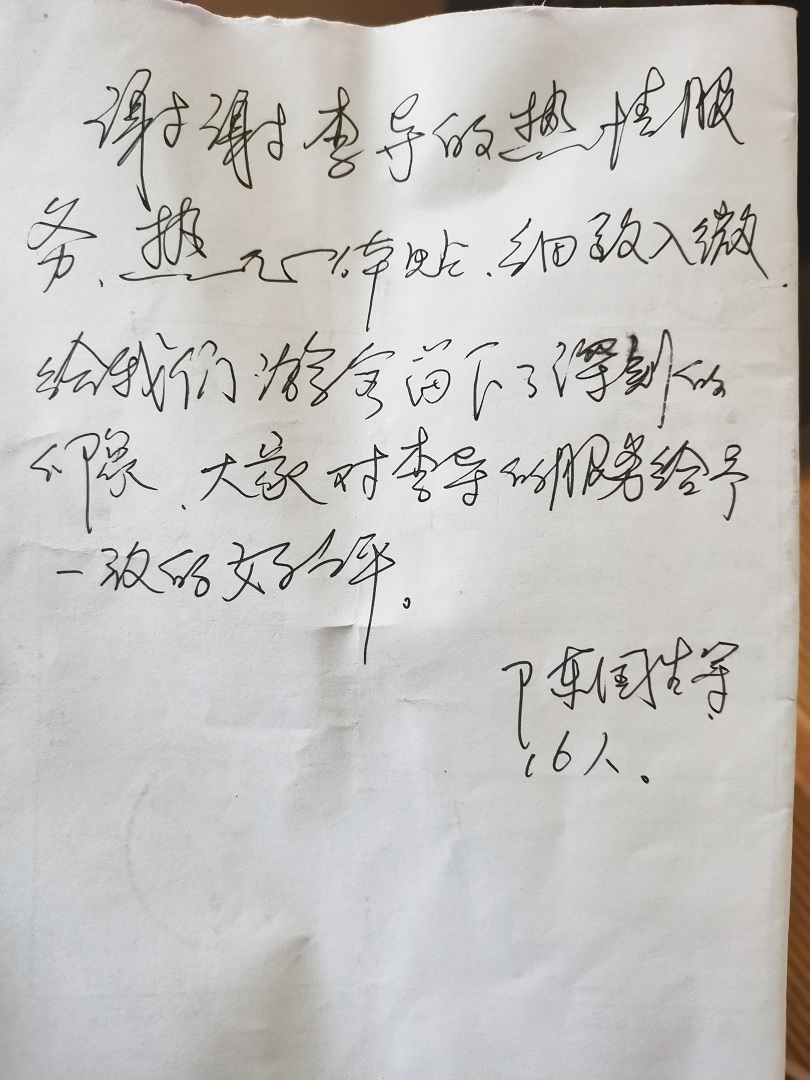 谢谢李导的热情服
务、热心体贴、细致入微
给我们游客留下了深刻的
印象、大家对李导的服务给予
一致的好评。
陈国生等
16人。